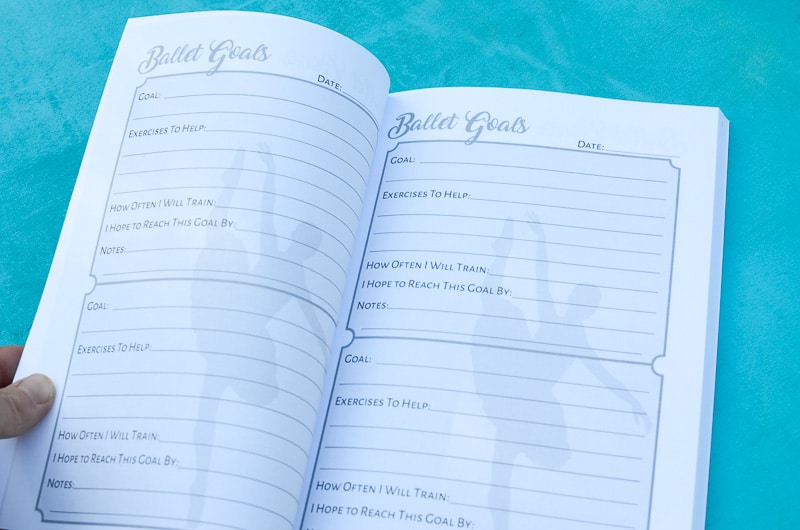 Ballet Goals
Date:
Goal:
Exercises To Help:
How Often I Will Train:
I Hope to Reach This Goal By:
Notes:
Goal:
Exercises To Help:
How Often I Will Train:
I Hope to Reach This Goal By:
Notes:
Ballet Goals
Date:
Goal:
Exercises To Help:
How Often I Will Train:
I Hope to Reach This Goal By:
Notes:
Goal:
Exercises To Help:
How Often I Will Train:
I Hope to Reach This Goal By: